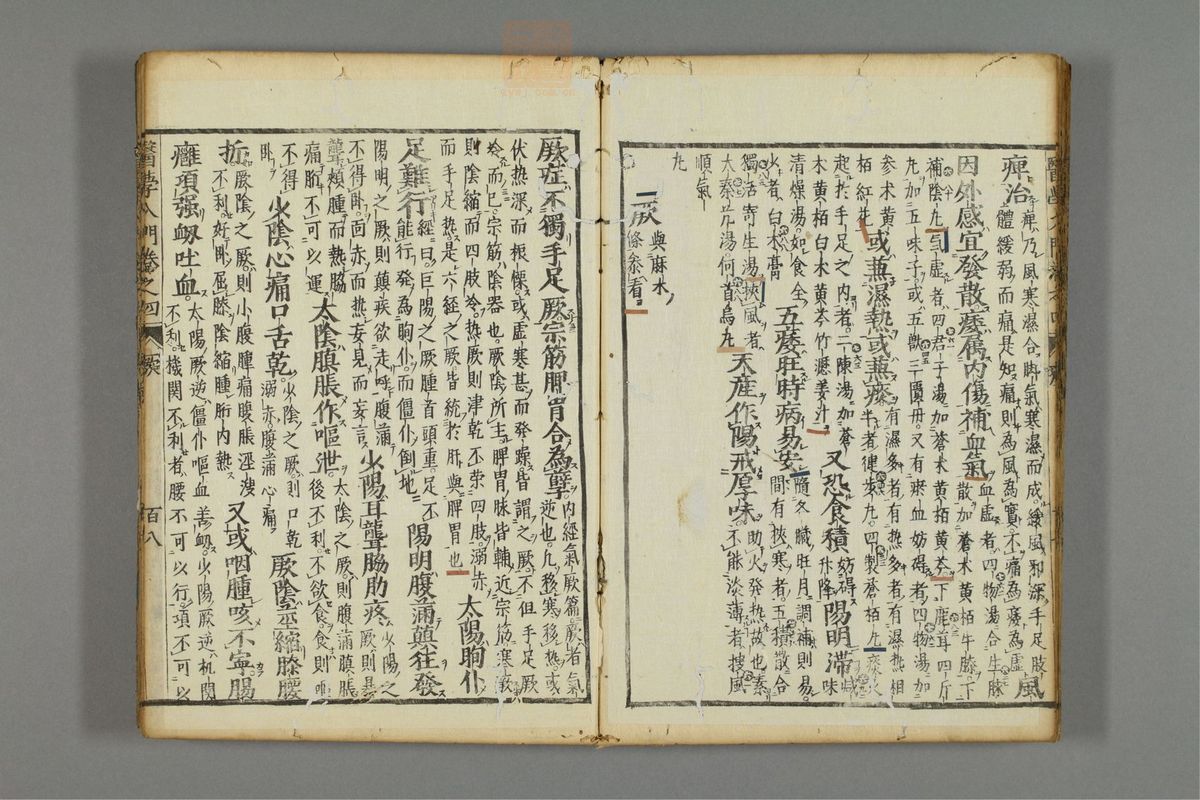 痺治痺乃風寒濕合脚氣寒濕而成緩風邪深手足肢體緩弱而痛是知痛則為風為實不痛為痿為虛風
因外感宜發散痿屬內傷補血氣血虛者四物湯合牛膝
補陰丸氣虛者四君子湯加蒼朮黃栢黃芩下鹿茸四斤
丸加五味子或五獸三匱丹又有瘀血妨碍者四物湯加
栢紅或兼濕熱或兼痰
起於手足之內者二陳湯加蒼
朮黃栢白朮黃芩竹瀝姜汁又恐食積妨碍升降陽明滯
清燥湯如食全
火者白朮膏五痿旺時病易安隨各臟旺月調補則易
獨活寄生湯挾風者
太秦艽湯何首烏丸天産作陽戒厚味助火發熱故也素不能淡薄者捜風
順氣
丸
二厥與麻木條条看
厥症不獨手足厥宗筋脾胃合為孽內經氣厥篇厥者氣逆也凡移寒移熱或
伏热深而振慄或虛寒甚而發躁皆謂之厥不但手足厥
冷而已宗筋陰器也厥陰所主脾胃脉皆輔近宗筋寒厥
則陰縮而四肢冷热厥則津乾不荣四肢溺赤太陽朐仆
而手足热是六經之厥皆統於肝與脾胃也
足難行經曰巨陽之厥腫首頭重足不能行發為朐仆而僵仆倒地陽明腹滿顛狂發
陽明之厥則顛疾欲走呼腹滿不得卧面赤而热妄見而妄言少陽耳聾脇肋疼少陽之厥則暴
聾頰腫而熱脇痛胻不可以運太陰䐜脹作嘔泄太陰之厥則腹滿䐜脹後不利不欲食食則嘔
不得卧少陰心痛口舌乾少陰之厥則口乾溺赤腹滿心痛厥陰莖縮膝腰
折厥陰之厥則小腹腫痛腹脹涇溲不利好卧屈膝陰縮腫胻內熱又或咽腫咳不寧腸
癰項强衂吐血太陽厥逆僵仆嘔血善衂少陽厥逆机関不利機関不利者腰不可以行項不可以
醫學入門卷之四
厥
百八